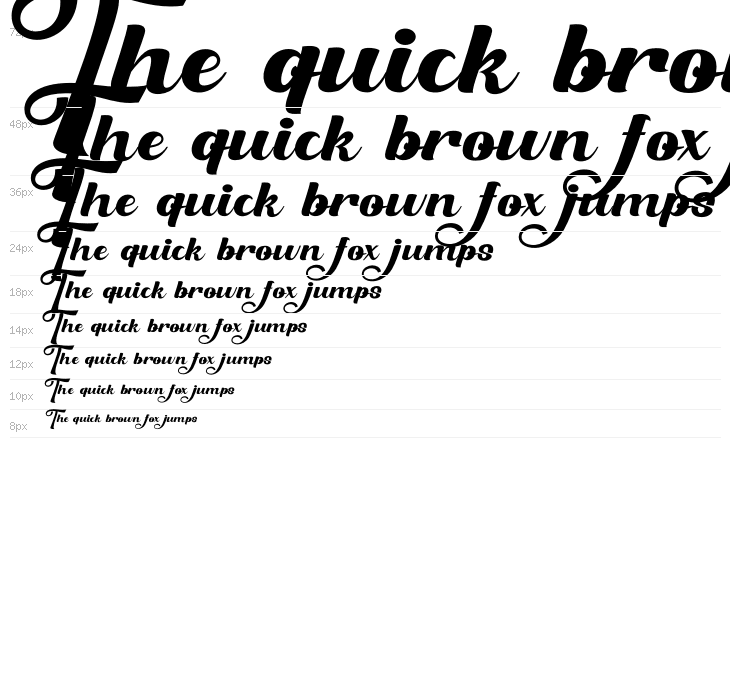 72px The quick bro
48px The quick brown fox j
36px The quick brown fox jumps
24px The quick brown fox jumps
18px The quick brown fox jumps
14px The quick brown fox jumps
12px The quick brown fox jumps
10px The quick brown fox jumps
8px The quick brown fox jumps